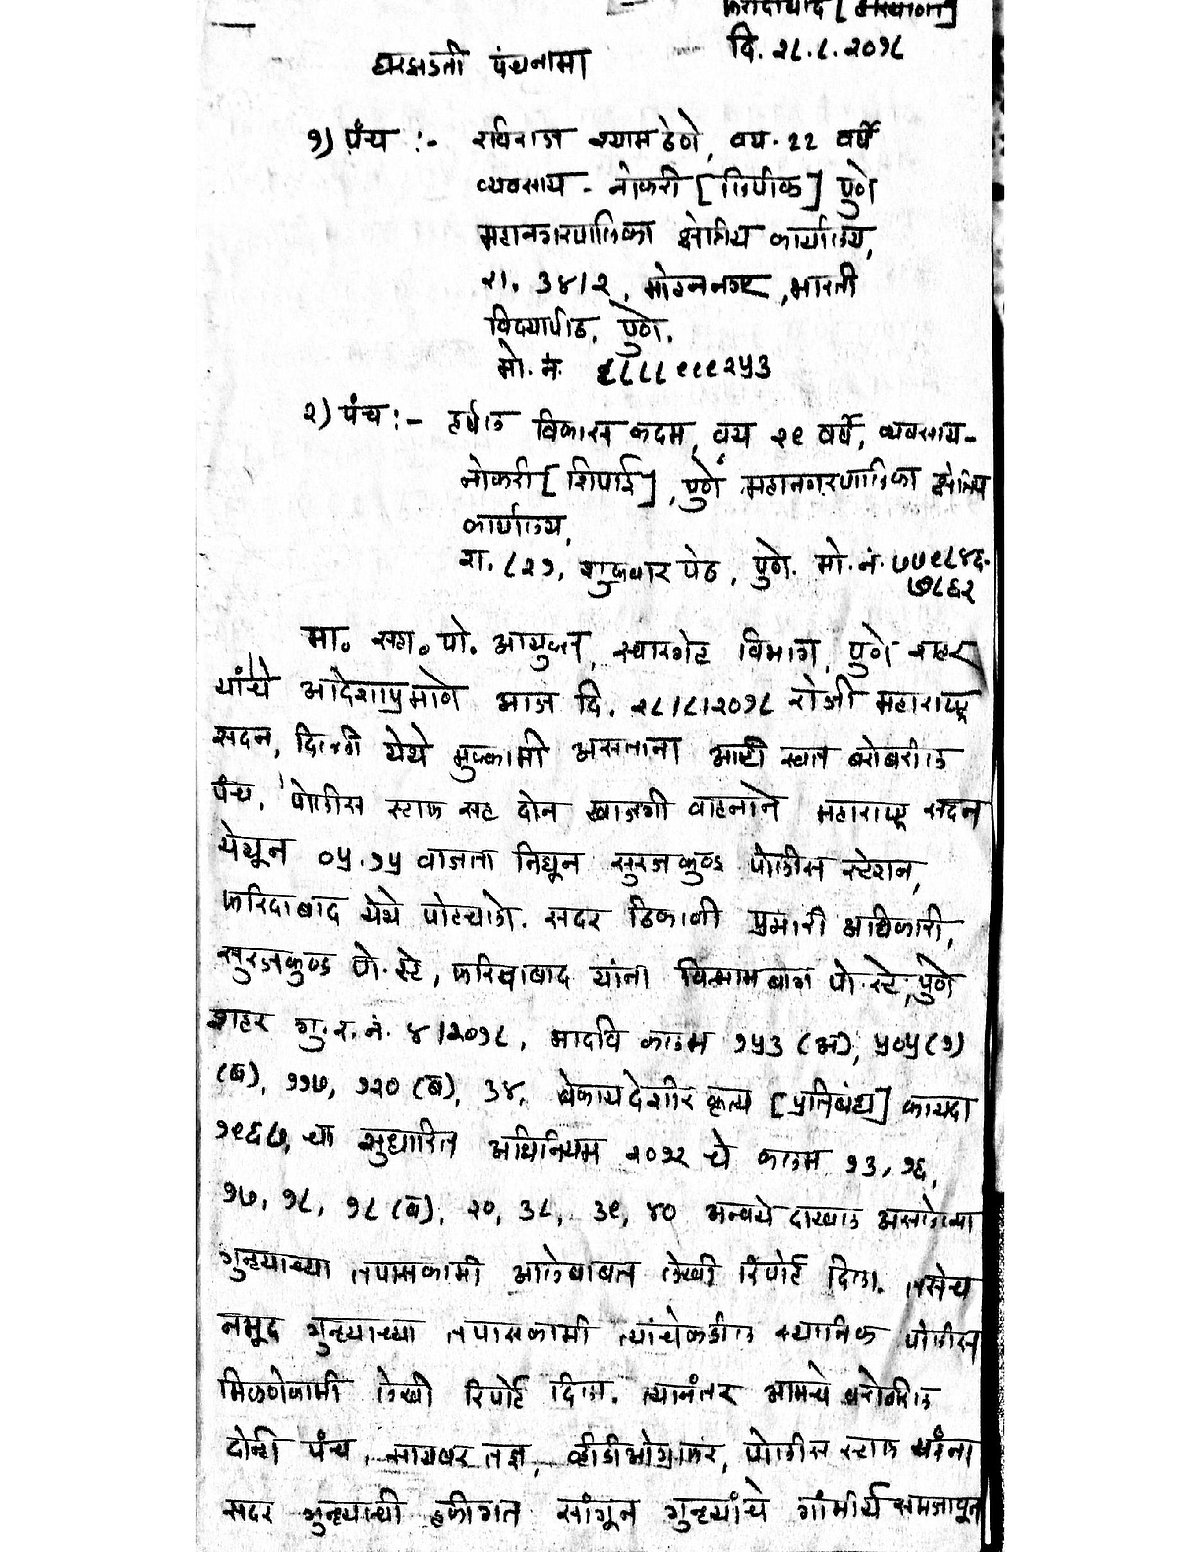 फरीदाबाद [हरियाणा]
दि. २८.८.२०१८
घरझडती पंचनामा
१) पंच :- रविराज श्याम ढेणे, वय. २२ वर्षे
व्यवसाय - नोकरी [लिपीक] पुणे
महानगरपालिका क्षेत्रीय कार्यालय,
रा. ३४/२, मोहननगर, भारती
विद्यापीठ, पुणे.
मो. नं.
२) पंच :- विकास कदम, वय २९ वर्षे, व्यवसाय-
नोकरी [शिपाई], पुणे महानगरपालिका क्षेत्रिय
कार्यालय,
रा. ८२१, शुक्रवार पेठ, पुणे. मो. नं. ७७९८४६-
७८६२
मा. सहा. पो. आयुक्त, स्वारगेट विभाग, पुणे शहर
यांचे आदेशाप्रमाणे आज दि. २८/८/२०१८ रोजी महाराष्ट्र
सदन, दिल्ली येथे मुक्कामी असताना आम्ही स्वत बरोबरील
पंच, पोलीस स्टाफ सह दोन खाजगी वाहनाने महाराष्ट्र सदन
येथून ०५.१५ वाजता निघून सुरजकुण्ड पोलीस स्टेशन,
फरिदाबाद येथे पोहचालो. सदर ठिकाणी प्रभारी अधिकारी,
सुरजकुण्ड पो. स्टे, फरिदाबाद यांना विश्रामबाग पो. स्टे, पुणे
शहर गु. र. नं. ४/२०१८, भादवि कलम १५३ (अ), ५०५(१)
(ब), ११७, १२० (ब), ३४, बेकायदेशीर कृत्य [प्रतिबंध] कायदा
१९६७, चा सुधारित अधिनियम २०१२ चे कलम १३, १६,
१७, १८, १८ (ब), २०, ३८, ३९, ४० अन्वये दाखल असलेल्या
गुन्ह्याच्या तपासकामी आलेबाबत लेखी रिपोर्ट दिला. तसेच
नमूद गुन्ह्याच्या तपासकामी त्यांचेकडील स्थानिक पोलीस
मिळणेकामी लेखी रिपोर्ट दिला. त्यानंतर आमचे बरोबरील
दोन्ही पंच, सायबर तज्ञ, व्हीडीओग्राफर, पोलीस स्टाफ यांना
सदर गुन्ह्याची हकीगत सांगून गुन्ह्यांचे गांभीर्य समजावून